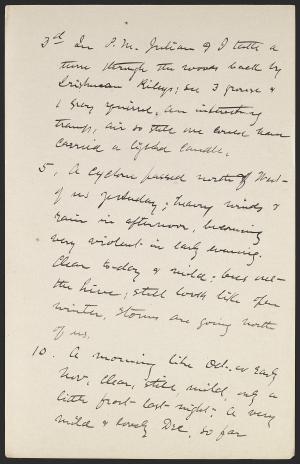 3d In P.M. Julian & I take a
turn through the woods back by
Irishman Rileys; see 3 grouse &
1 gray squirrel. An interesting
tramp, air so still one could have
carried a lighted candle.
5, A Cyclone passed north of West-
of us yesterday; heavy winds &
rain in afternoon, becoming
very violent in early evening.
Clear to-day & mild; bees out-
the hive; still looks like open
winter, storms are going north
of us.
10. A morning like Oct. or early
Nov, clear, still, mild, only a
little frost last-night. A very
mild & lovely Dec, so far